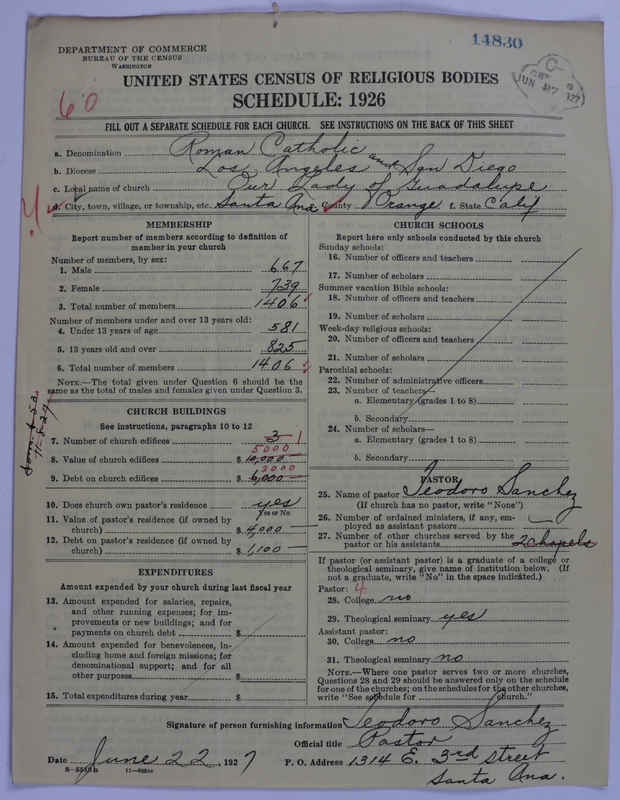 14830
DEPARTMENT OF COMMERCE
BUREAU OF THE CENSUS
WASHINGTON
JUN 27 1927
60
UNITED STATES CENSUS OF RELIGIOUS BODIES
SCHEDULE: 1926
FILL OUT A SEPARATE SCHEDULE FOR EACH CHURCH. SEE INSTRUCTIONS ON THE BACK OF THIS SHEET
a. Denomination Roman Catholic
b. Diocese Los Angeles and San Diego
c. Local name of church Our Lady of Guadalupe
d. City, town, village, or township, etc. Santa Ana County Orange f. State Calif
MEMBERSHIP
Report number of members according to definition of
member in your church
Number of members, by sex:
1. Male 667
2. Female 739
3. Total number of members 1406
Number of members under and over 13 years old:
4. Under 13 years of age 581
5. 13 years old and over 825
6. Total number of members 1406
NOTE.—The total given under Question 6 should be
same as the total of males and females given under Question 3.
CHURCH BUILDINGS
See instructions, paragraphs 10 to 12
7. Number of church edifices 3 1
5000
8. Value of church edifices $ 10,000
3000
9. Debt on church edifices $ 6,000
10. Does church own pastor's residence yes
Yes or No
11. Value of pastor's residence (if owned by
church) $ 4,000
12. Debt on pastor's residence (if owned by
church) $ 1,100
EXPENDITURES
Amount expended by your church during last fiscal year
13. Amount expended for salaries, repairs,
and other running expenses; for im-
provements or new buildings; and for
payments on church debt $
14. Amount expended for benevolences, in-
cluding home and foreign missions; for
denominational support; and for all
other purposes $
15. Total expenditures during year $
CHURCH SCHOOLS
Report here only schools conducted by this church
Sunday schools:
16. Number of officers and teachers
17. Number of scholars
Summer vacation Bible schools:
18. Number of officers and teachers
19. Number of scholars
Week-day religious schools:
20. Number of officers and teachers
21. Number of scholars
Parochial schools:
22. Number of administrative officers
23. Number of teachers—
a. Elementary (grades 1 to 8)
b. Secondary
24. Number of scholars—
a. Elementary (grades 1 to 8)
b. Secondary
PASTOR
25. Name of pastor Teodoro Sanchez
(If church has no pastor, write "None")
26. Number of ordained ministers, if any, em-
ployed as assistant pastors
27. Number of other churches served by the
pastor or his assistants 2 chapels
If pastor (or assistant pastor) is a graduate of a college or
theological seminary, give name of institution below. (If
not a graduate, write "No" in the space indicated.)
Pastor: 4
28. College no
29. Theological seminary yes
Assistant pastor:
30. College no
31. Theological seminary no
NOTE.—Where one pastor serves two or more churches,
Questions 28 and 29 should be answered only on the schedule
for one of the churches; on the schedules for the other churches,
write "See schedule for church."
Signature of person furnishing information Teodoro Sanchez
Official title Pastor
Date June 22, 1927 P. O. Address 1314 E. 3rd street
Santa Ana.